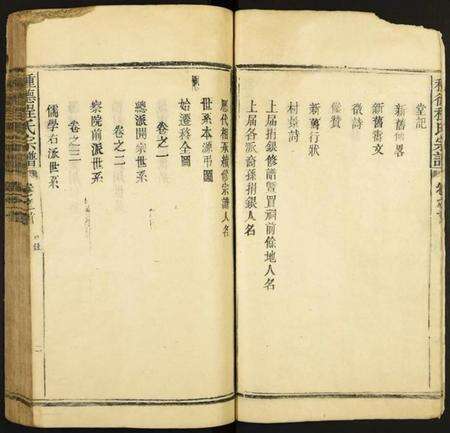 堂記
新舊傳畧
新舊壽文
徵詩
像贊
新舊行狀
村長詩
上屆捐銀修譜暨置祠前餘地人名
上屆各派裔孫捐銀人名
歷代相承續修宗譜人名
世系本源弔圖
始遷移全圖
卷之一
總派開宗世系
卷之二
察院前派世系
卷之三
儒學右派世系
種德程氏宗譜